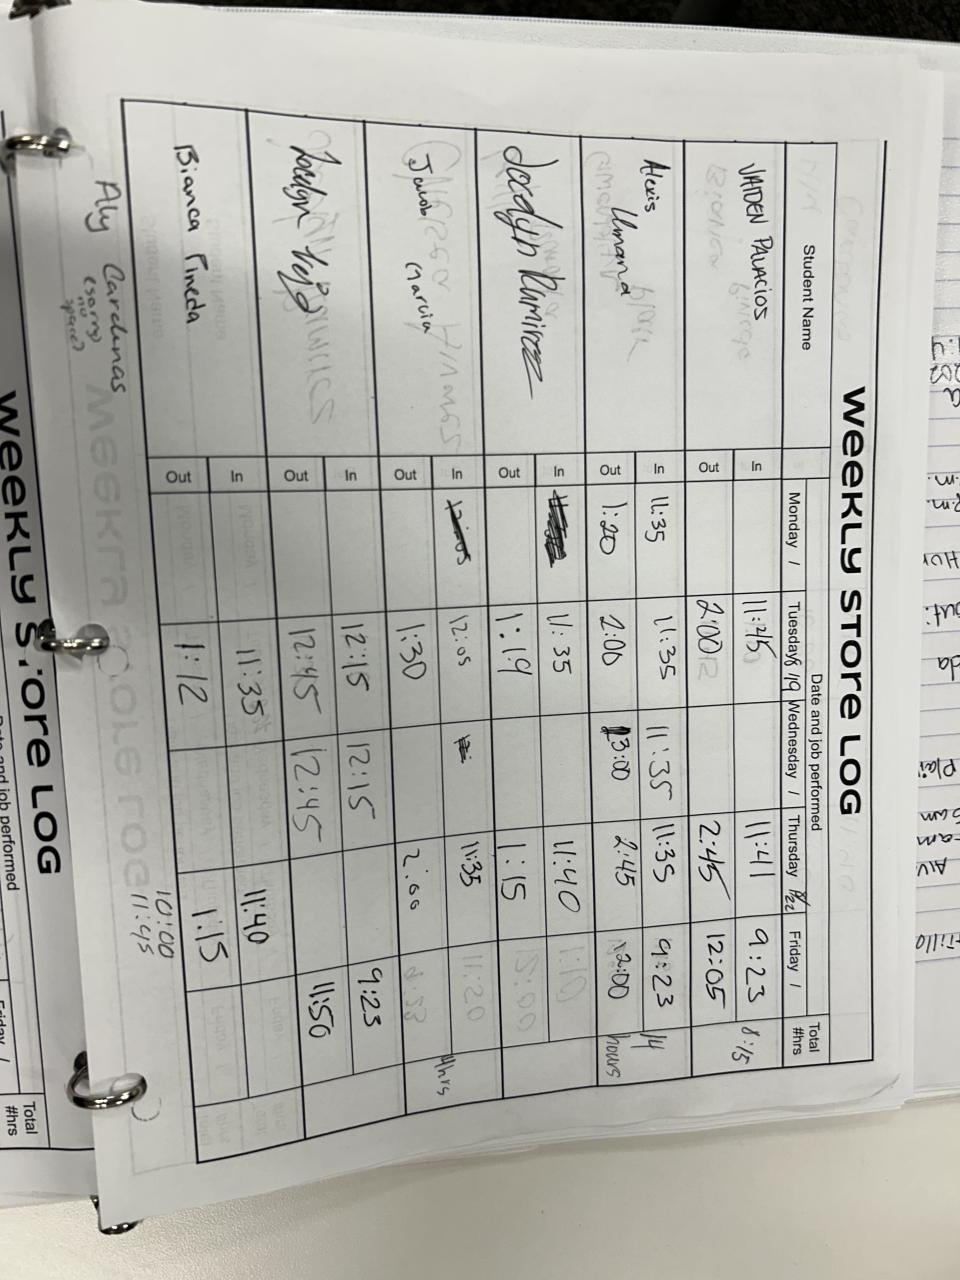 WEEKLY STORE LOG
Student Name
Date and job performed
Total #hrs
Monday / Tuesday 8/19 Wednesday / Thursday 8/22 Friday /
VAIDEN PALACIOS
In 11:45 11:41 9:23 8:15
Out 2:00 2:45 12:05
Alexis Umana
In 11:35 11:35 11:35 11:35 9:23 14
Out 1:20 2:00 3:00 2:45 2:00 hours
Jocelyn Ramirez
In 11:35 11:40
Out 1:19 1:15
Jacob Garcia
In 12:05 12:05 11:35 4hrs
Out 1:30 2:00
In 12:15 12:15 9:23
Out 12:45 12:45 11:50
Bianca Pineda
In 11:35 11:40
Out 1:12 1:15
Aly Cardenas
(sorry no space)
10:00
11:45
WEEKLY STORE LOG
Date and job performed
Friday /
Total #hrs